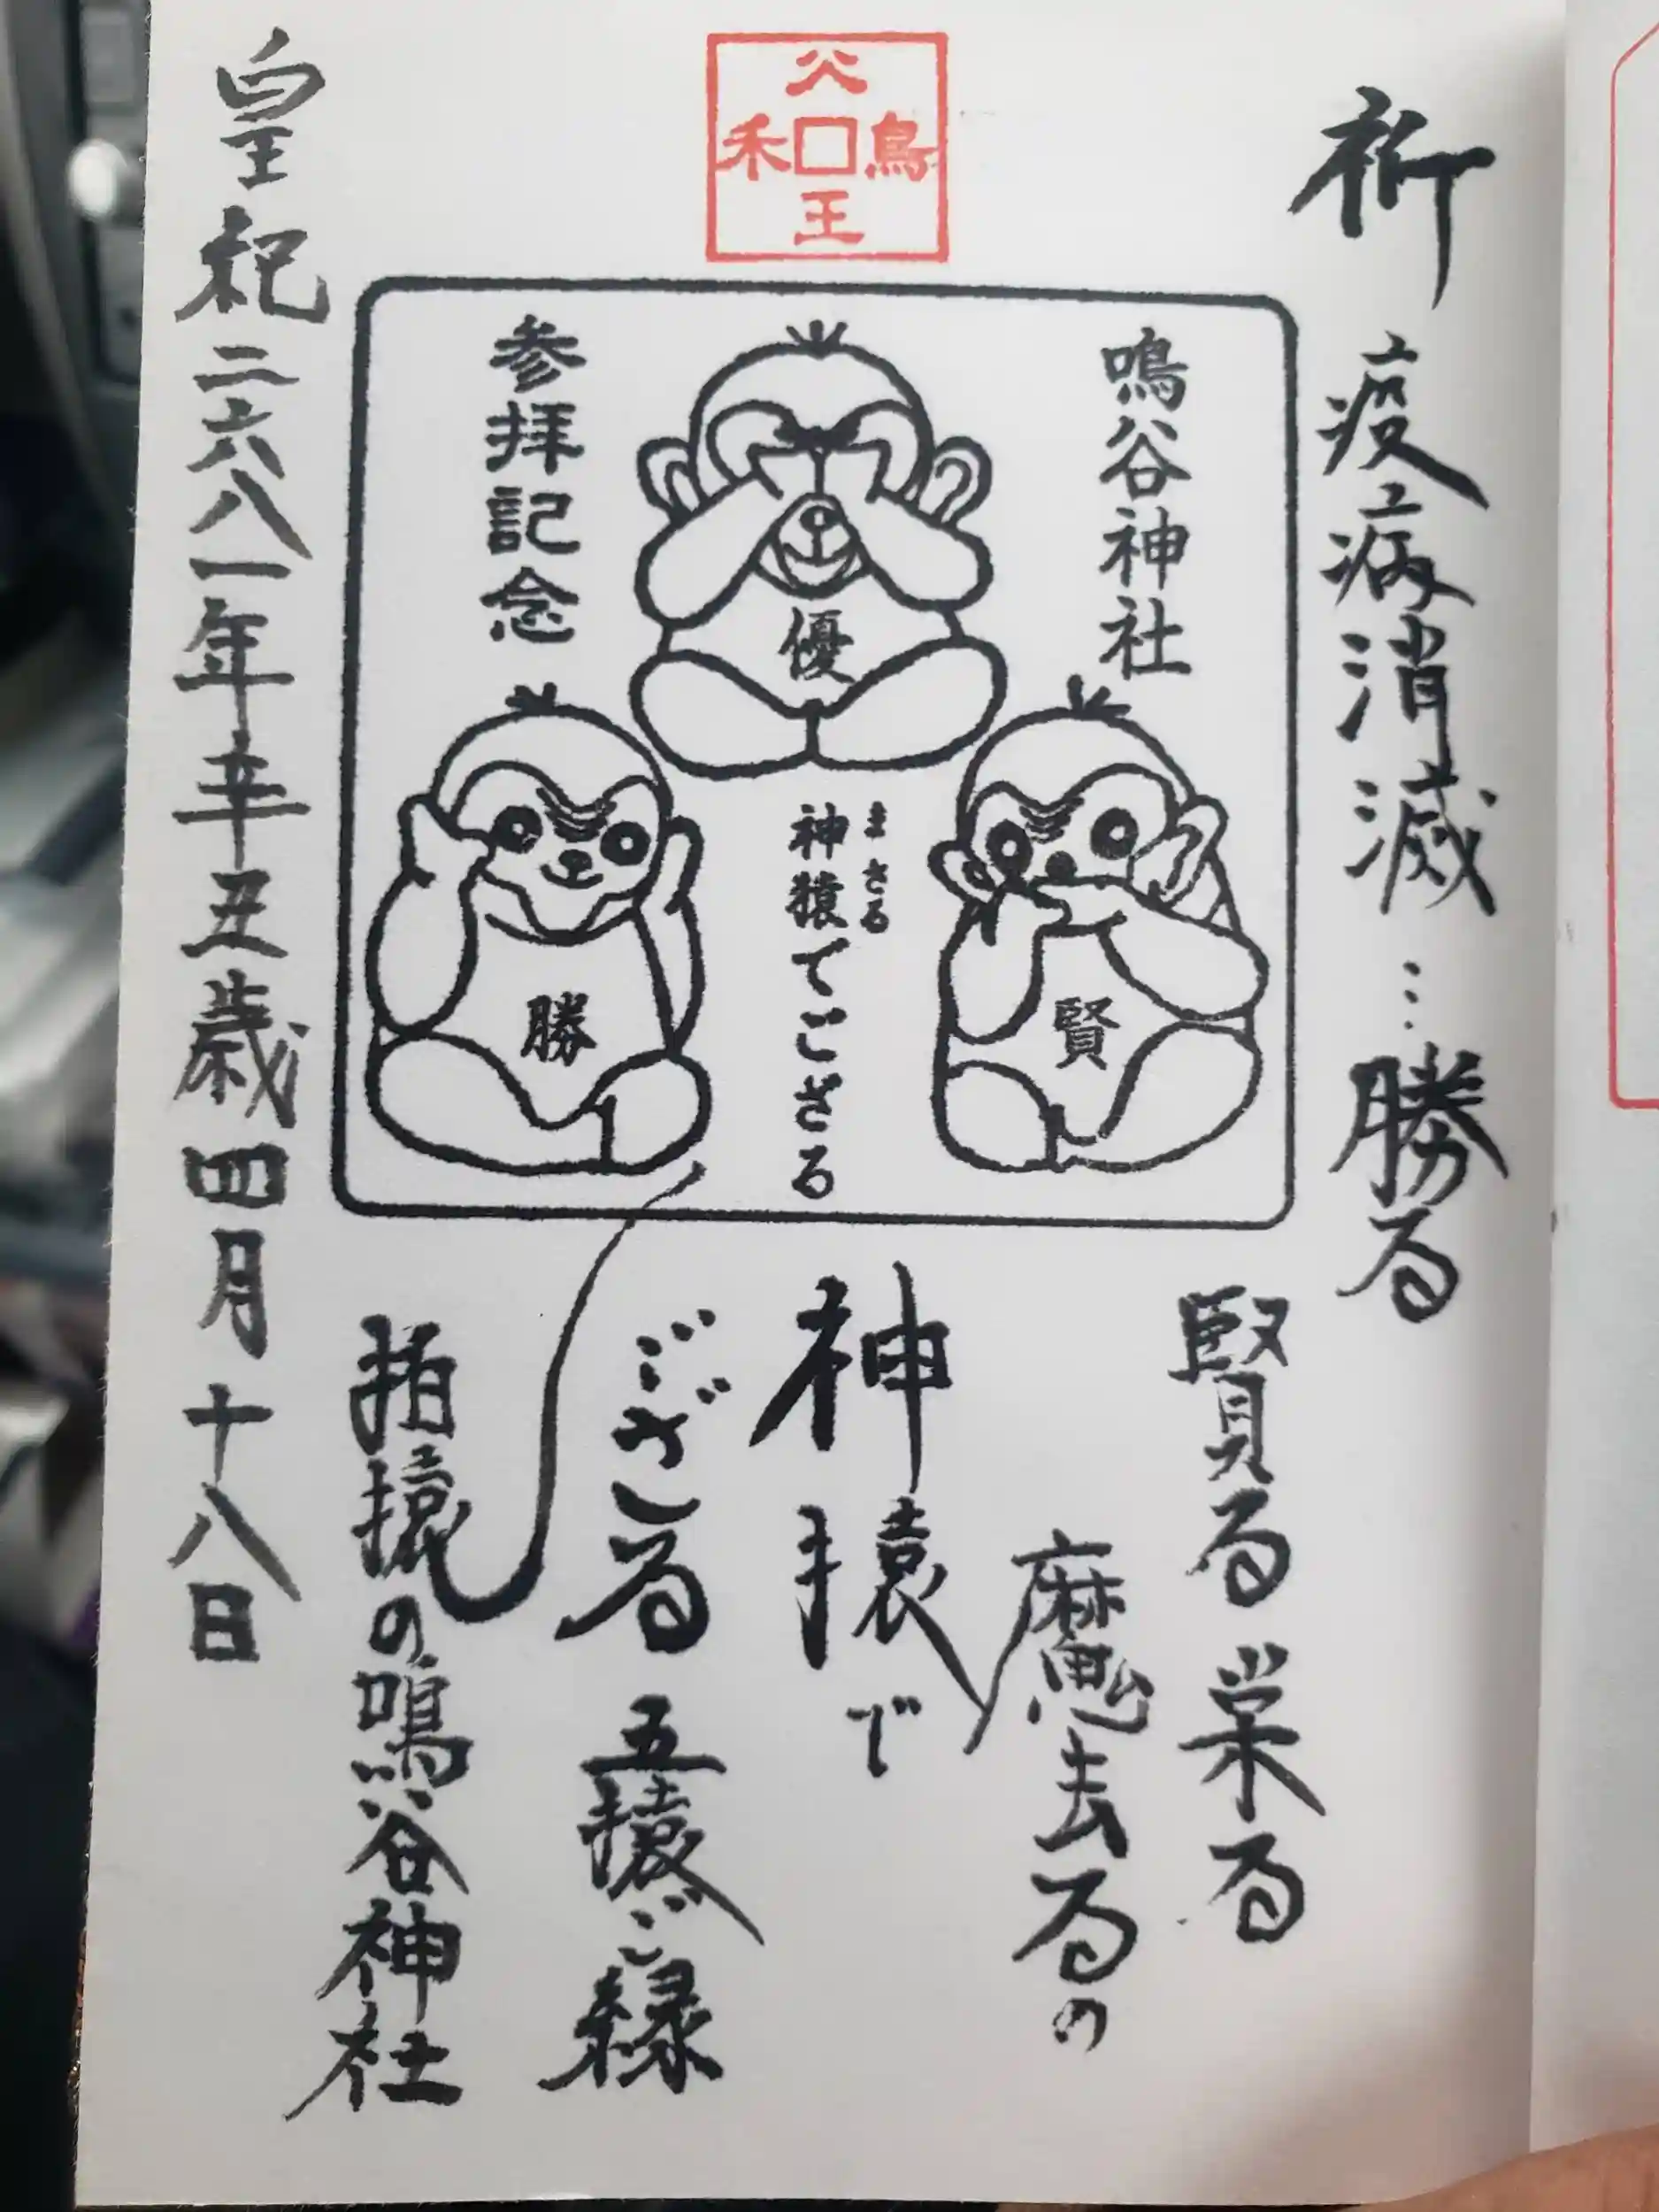 祈 疫病消滅…勝る
賢る 栄る
魔去るの
神猿で
ござる 五猿ご縁
招猿の鳴谷神社
皇紀二六八一年辛丑歳四月十八日
鳴谷神社
参拝記念
優
賢
勝
まさる
神猿でござる